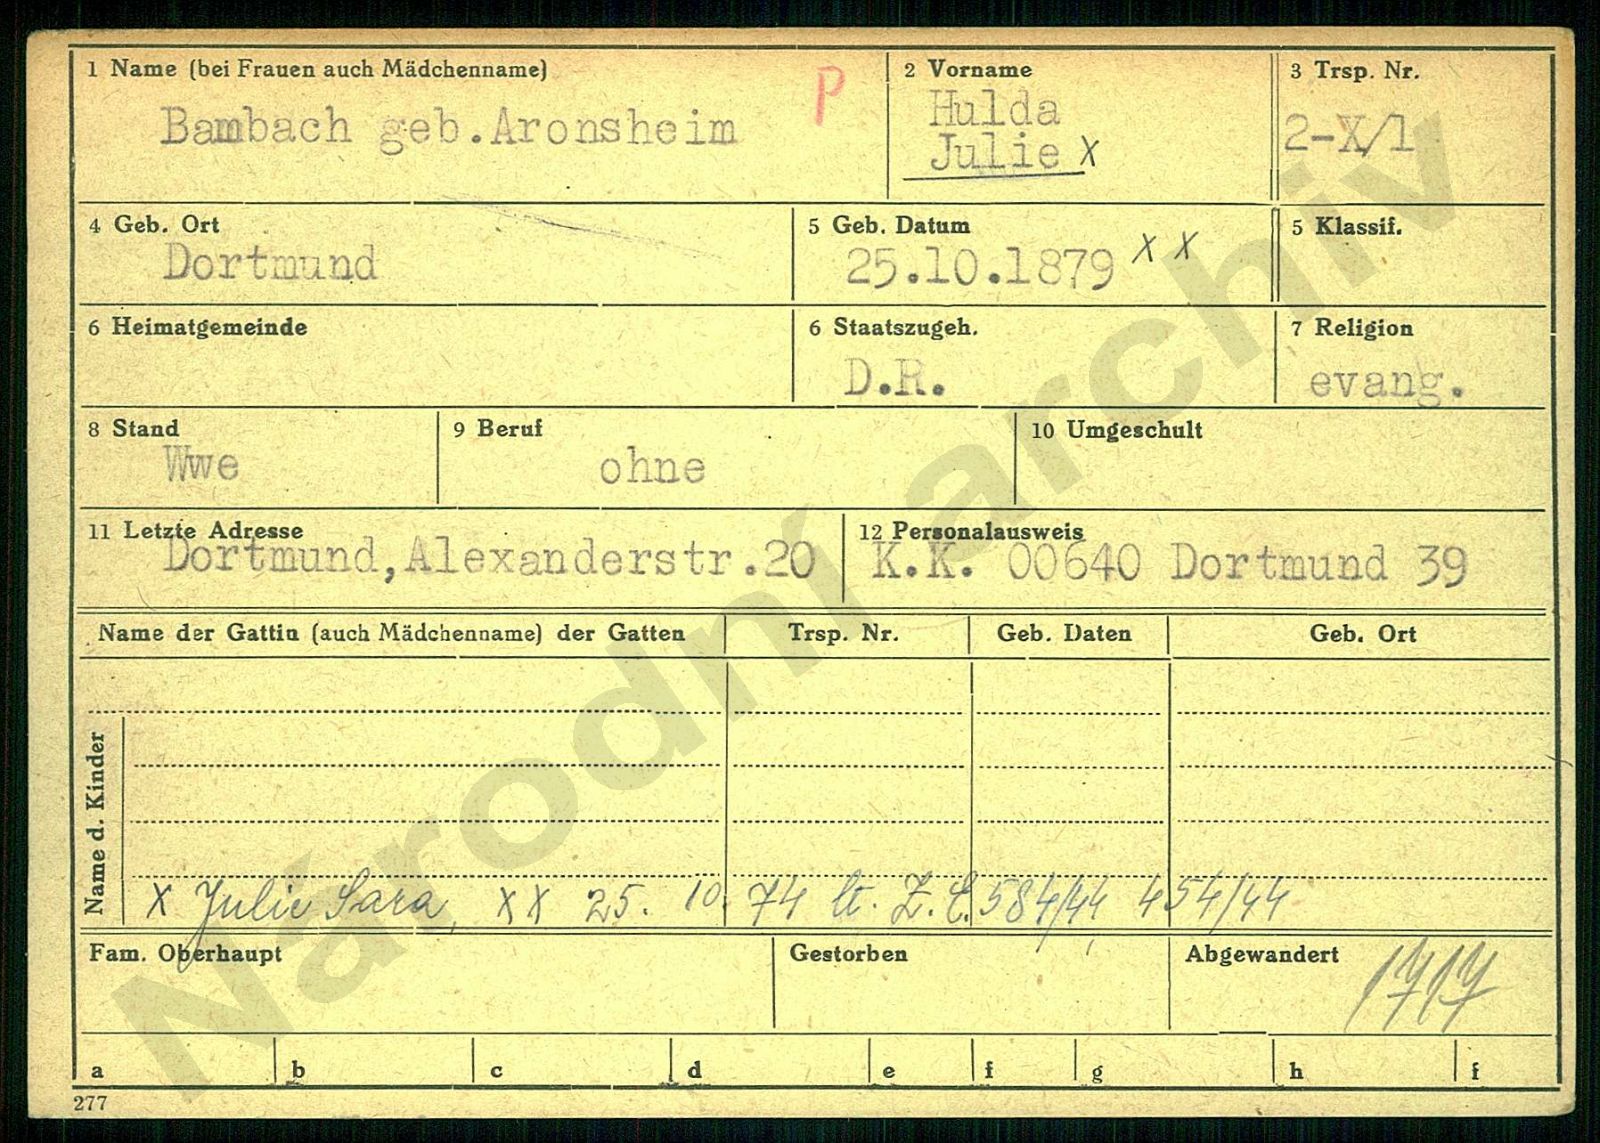 1 Name (bei Frauen auch Mädchenname)
Bambach geb.Aronsheim
P
2 Vorname
Hulda
Julie x
3 Trsp. Nr.
2-X/1
4 Geb. Ort
Dortmund
5 Geb. Datum
25.10.1879 x x
5 Klassif.
6 Heimatgemeinde
6 Staatszugeh.
D.R.
7 Religion
evang.
8 Stand
Wwe
9 Beruf
ohne
10 Umgeschult
11 Letzte Adresse
Dortmund,Alexanderstr.20
12 Personalausweis
K.K. 00640 Dortmund 39
Name der Gattin (auch Mädchenname) der Gatten
Trsp. Nr.
Geb. Daten
Geb. Ort
Name d. Kinder
x Julie Sara, xx 25. 10. 74 lt. Z.E. 584/44, 454/44
Fam. Oberhaupt
Gestorben
Abgewandert
1717
a b c d e f g h f
277
Národní archiv